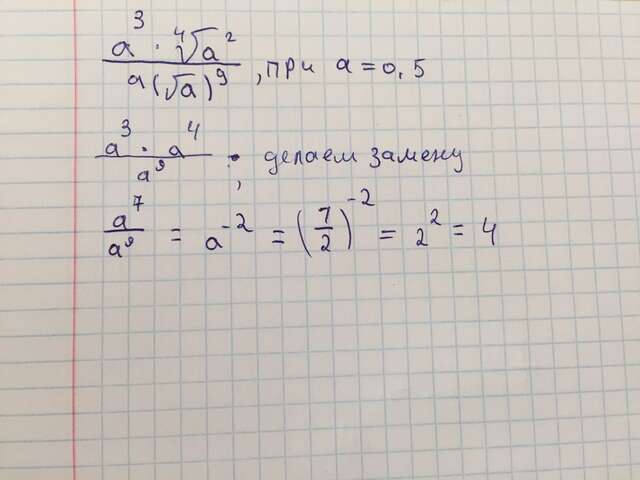 a³ · ⁴√a² / a(√a)⁹, при a = 0,5
a³ · a⁴ / a⁹ ; делаем замену
a⁷ / a⁹ = a⁻² = (1/2)⁻² = 2² = 4